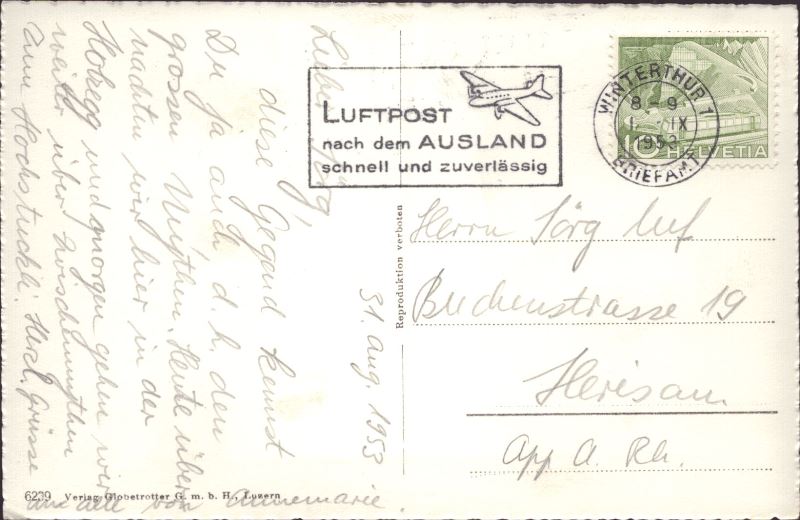 31. Aug. 1953
Lieber Jörg,
diese Gegend kennst
Du ja auch d.h. den
grossen Mythen. Heute über
nachten wir hier in der
Holzegg und morgen gehen wir
weiter über Zwischenmythen
zum Hochstuckli. Herzl. Grüsse
an alle von Annemarie.
6239 Verlag Globetrotter G.m.b.H., Luzern
Reproduktion verboten
LUFTPOST
nach dem AUSLAND
schnell und zuverlässig
WINTERTHUR 1
8-9
1. IX
1953
BRIEFAMT
10 HELVETIA
Herrn Jörg
Buchenstrasse 19
Herisau
App A. Rh.